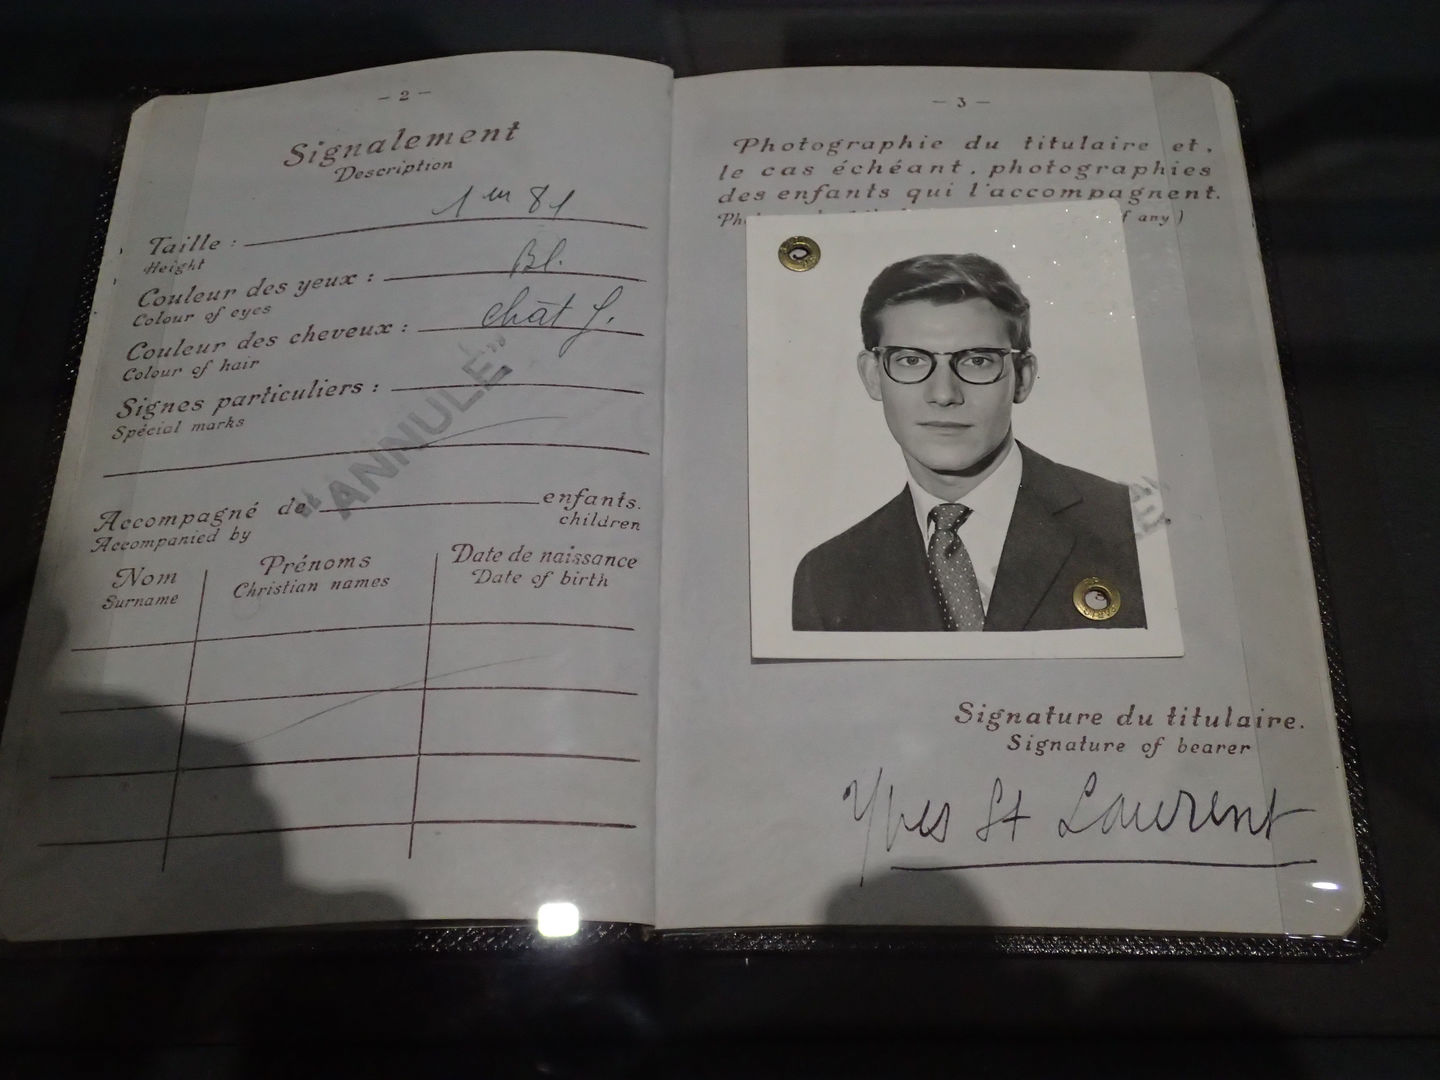 - 2 -
Signalement
Description
1m 81
Taille :
Height
Bl.
Couleur des yeux :
Colour of eyes
chât f.
Couleur des cheveux :
Colour of hair
Signes particuliers :
Spécial marks
"ANNULÉ"
Accompagné de enfants.
Accompanied by children
Nom Prénoms Date de naissance
Surname Christian names Date of birth
- 3 -
Photographie du titulaire et,
le cas échéant, photographies
des enfants qui l'accompagnent.
any)
Signature du titulaire.
Signature of bearer
Yves St Laurent